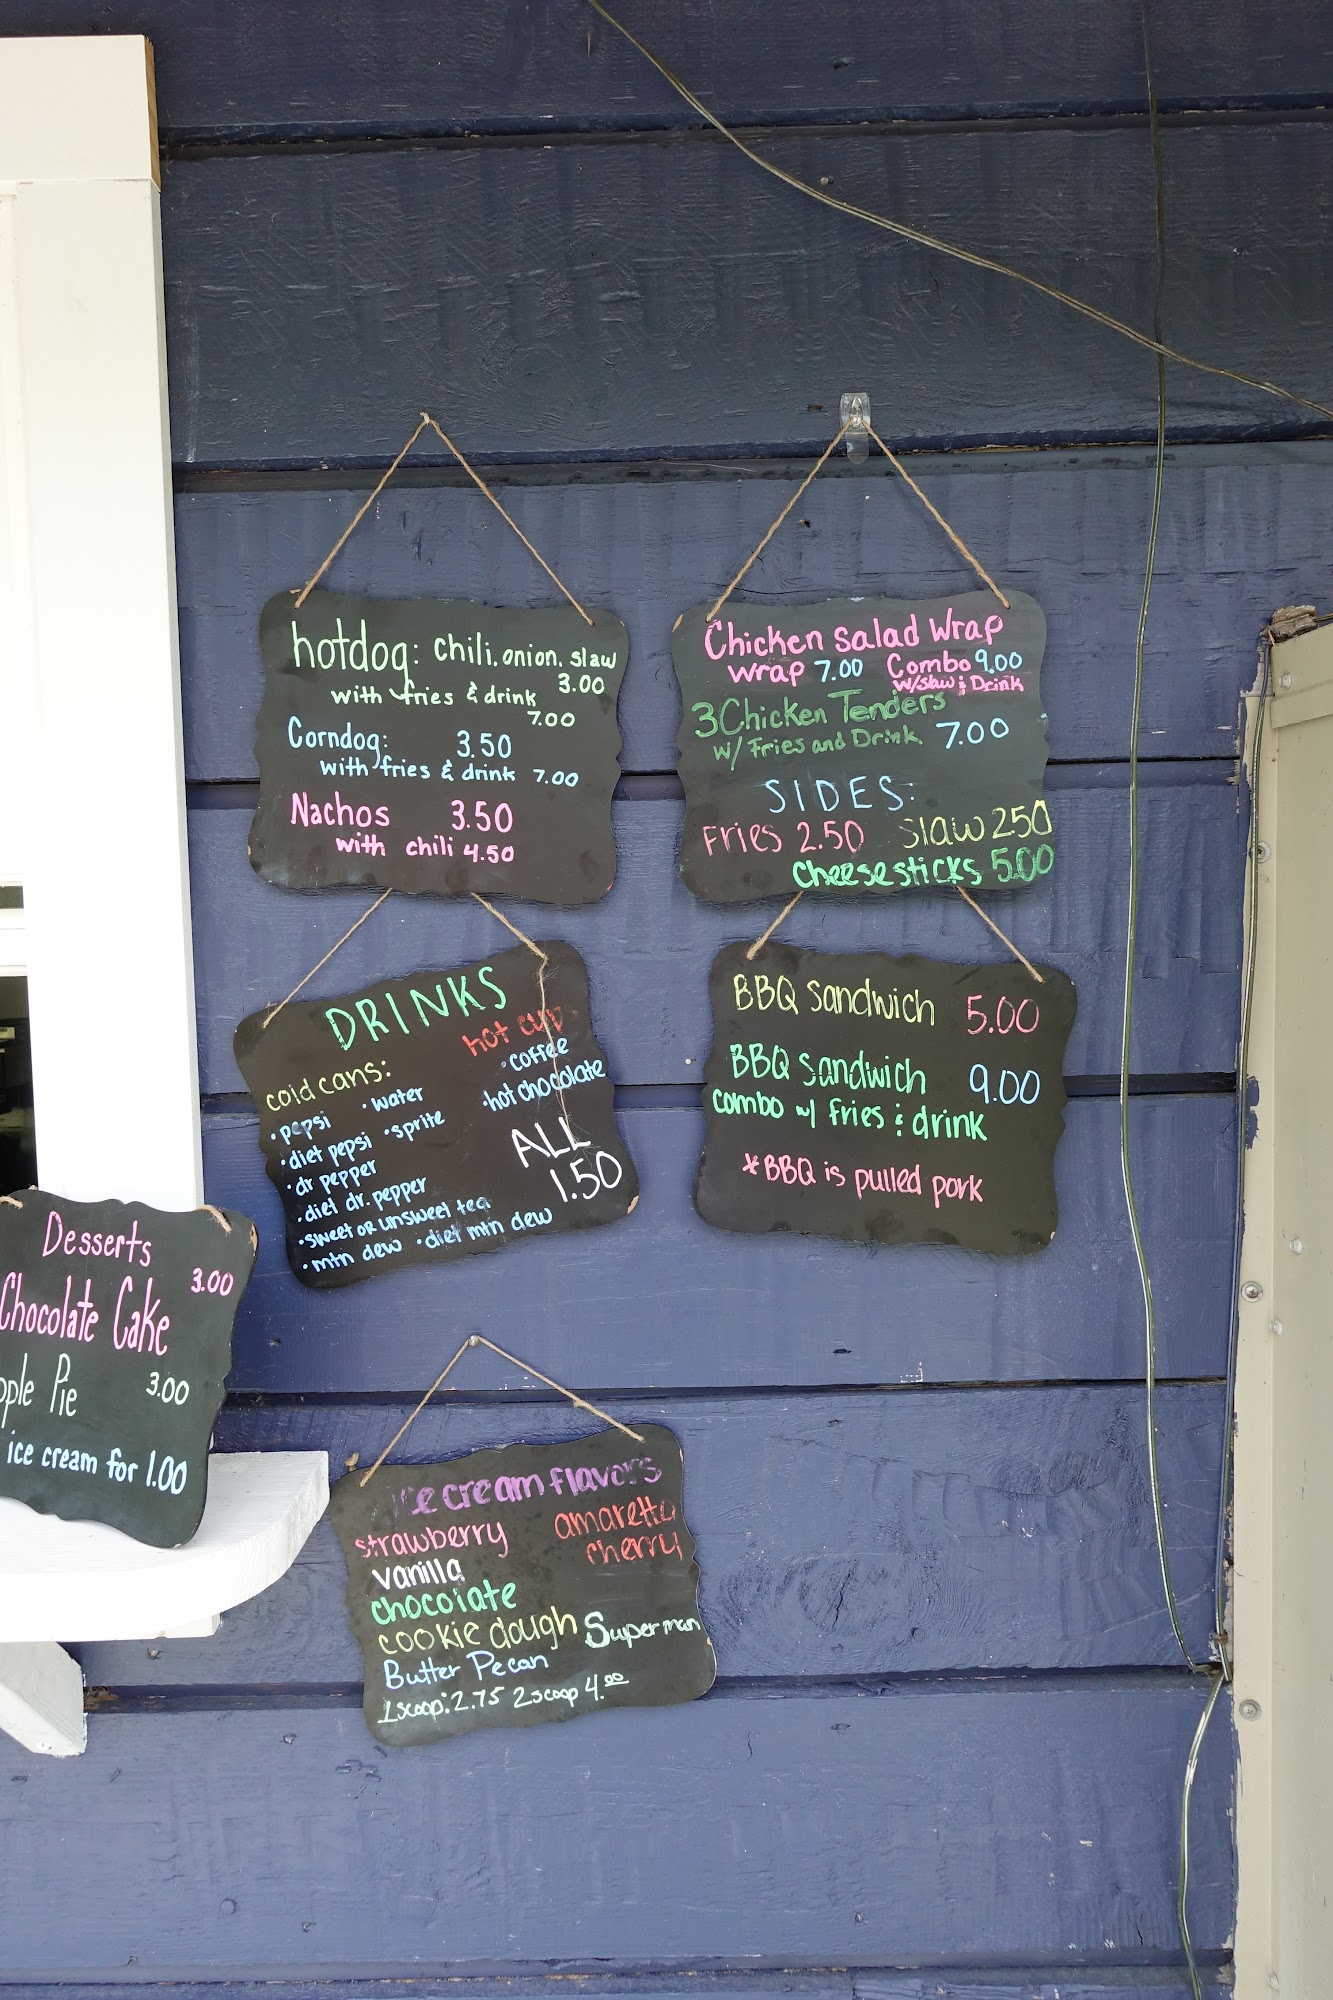 hotdog: chili. onion. slaw
3.00
with fries & drink
7.00
Corndog: 3.50
with fries & drink 7.00
Nachos 3.50
with chili 4.50
Chicken Salad Wrap
Wrap 7.00 Combo 9.00
w/slaw & Drink
3 Chicken Tenders
w/ Fries and Drink 7.00
SIDES:
Fries 2.50 Slaw 250
Cheesesticks 5.00
DRINKS
hot cup
• coffee
• hot chocolate
cold cans:
• pepsi • water
• diet pepsi • sprite
• dr pepper
• diet dr. pepper
• sweet or unsweet tea
• mtn dew • diet mtn dew
ALL
1.50
BBQ Sandwich 5.00
BBQ Sandwich 9.00
combo w/ fries & drink
*BBQ is pulled pork
Desserts
3.00
Chocolate Cake
Pie 3.00
ice cream for 1.00
ice cream flavors
strawberry amaretto
cherry
vanilla
chocolate
cookie dough Superman
Butter Pecan
1scoop: 2.75 2scoop 4.00